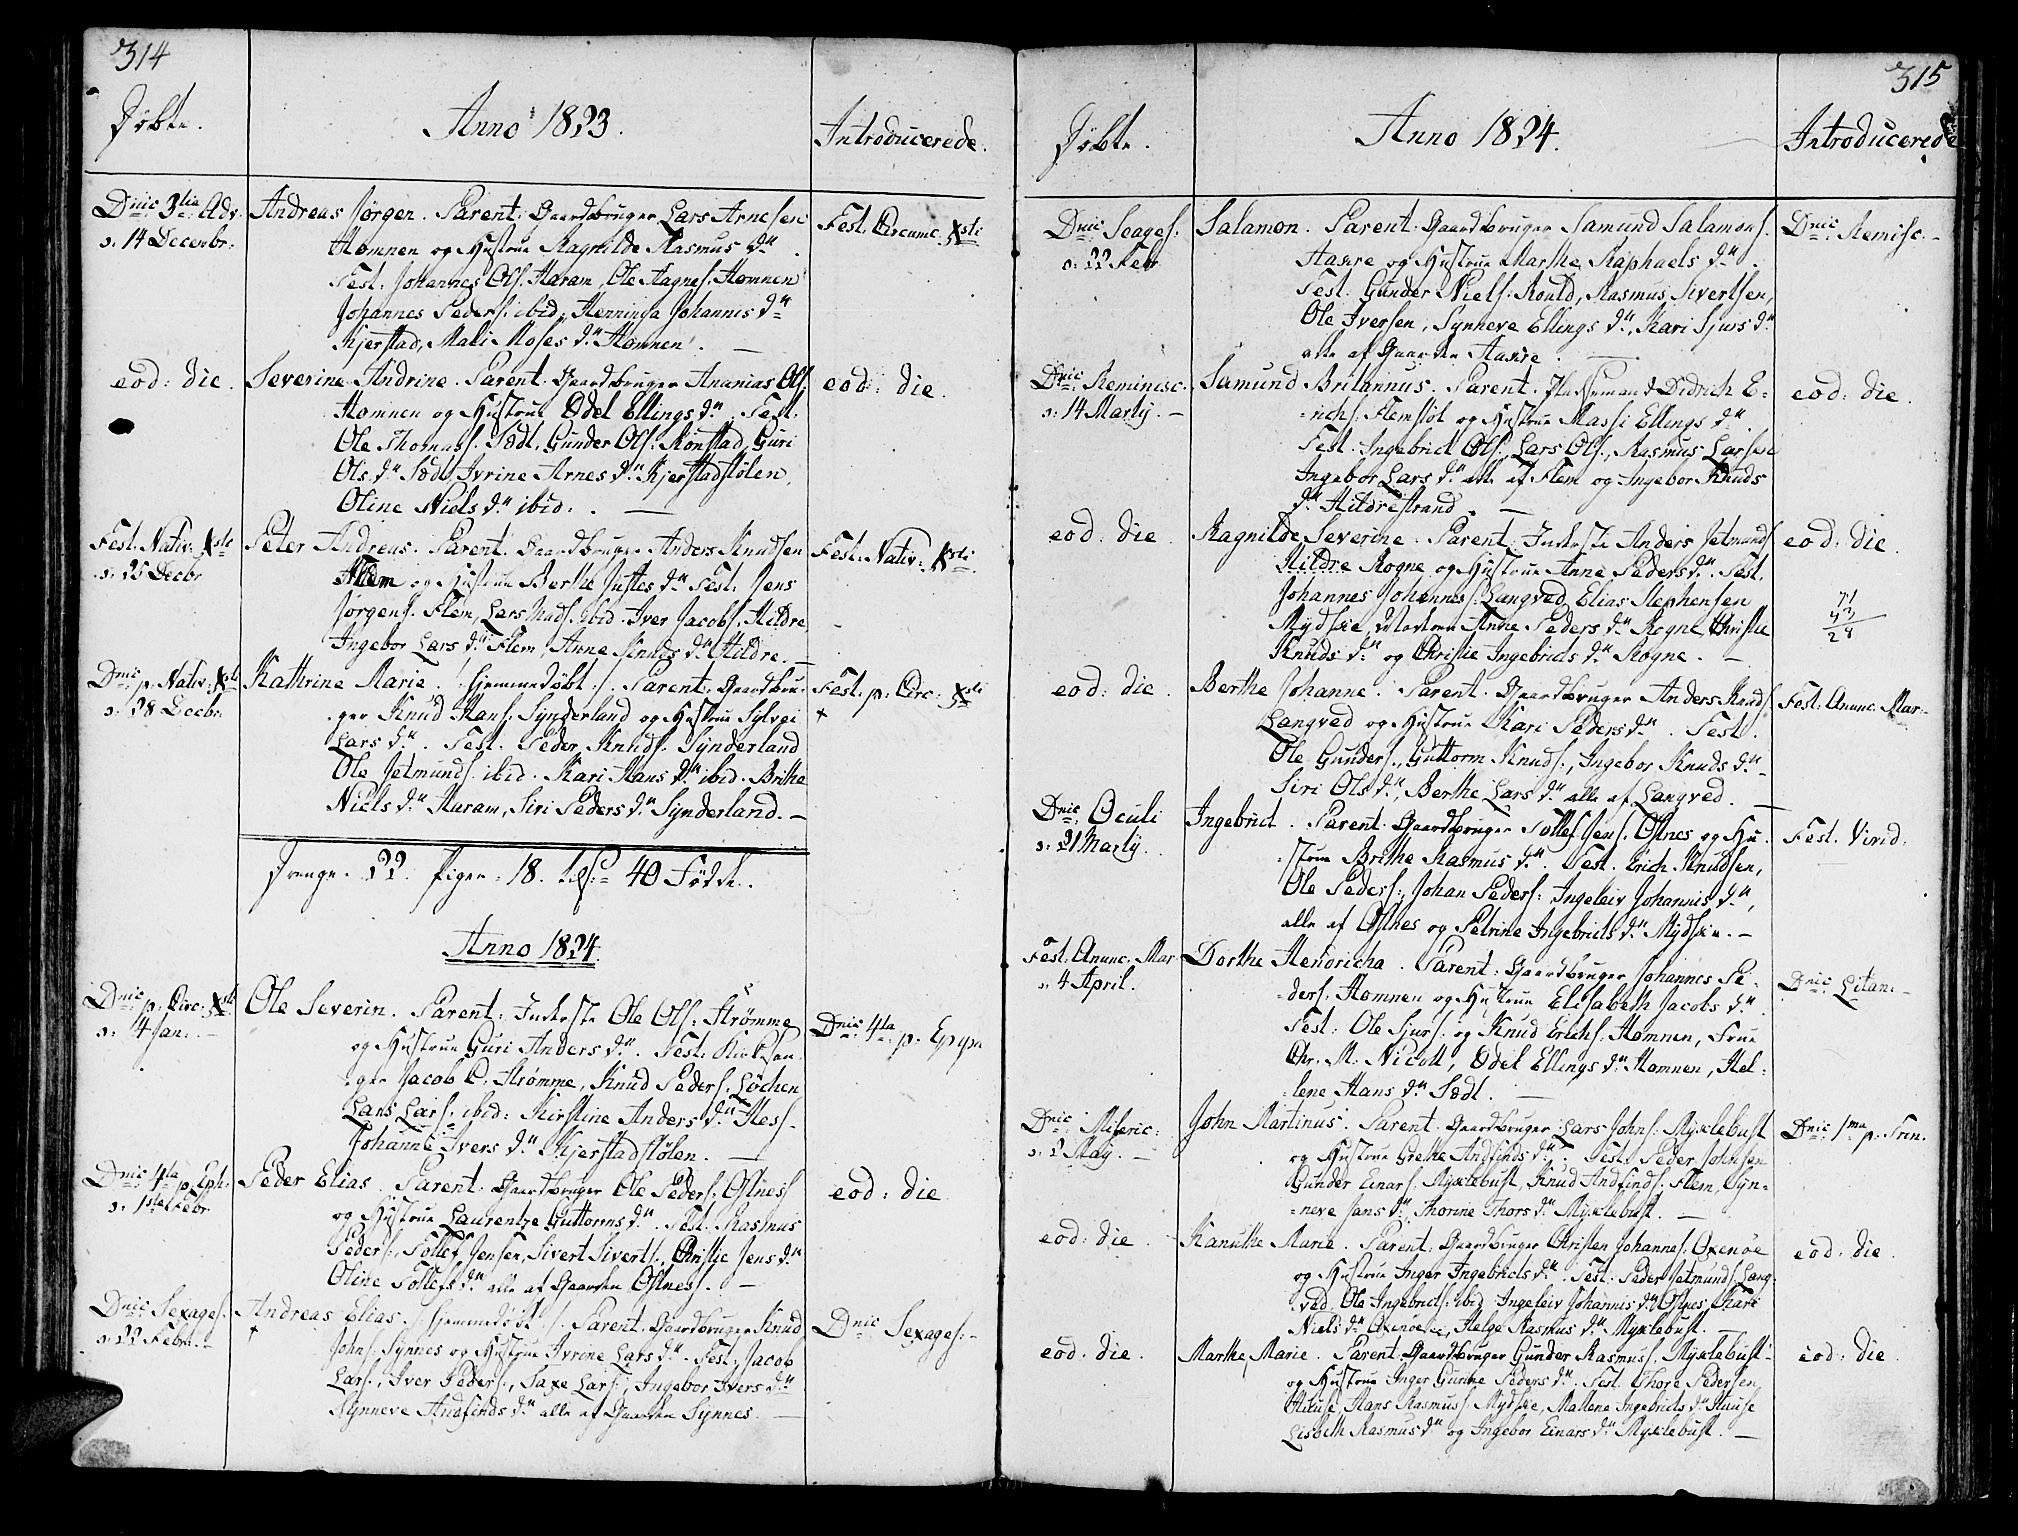 314
Døbte.
Anno 1823.
Introducerede.
Dnic: 3tia Adv.
ɔ: 14 Decenbr:
Andreas Jørgen. Parent: Gaardbruger Lars Arnesen
Hamnen og Hustrue Ragnilde Rasmus D:r
Test: Johannes Ols: Haram, Ole Aagnes: Hamnen
Johannes Peders: ibid, Henninga Johannis D:r
Kjerstad, Mali Moses D:r Hamnen. —
Fest: Circumc: Xsti
eod: die.
Severine Andrine. Parent: Gaardbruger Ananias Ols:
Hamnen og Hustrue Odel Ellings D:r. Test:
Ole Thomass. Sædt, Gunder Ols: Rønstad, Guri
Ols D:r Sædt, Ivrine Arnes D:r Kjerstadstølen,
Oline Niels D:r ibid: . —
eod: die.
Fest: Nativ: Xsti
ɔ: 25 Decbr
Peter Andreas. Parent: Gaardbruger Anders Knudsen
Flem og Hustrue Berthe Justes D:r Test: Jens
Jørgens: Flem, Lars Mads: ibid. Iver Jacobs: Hildre,
Ingebor Lars D:r Flem, Anne Knuds D:r Hildre. —
Fest: Nativ: Xsti
Dnic: p: Nativ: Xsti
ɔ: 28 Decbr:
Kathrine Marie. /: hjemmedøbt :/. Parent: Gaardbru-
ger Knud Hans: Synderland og Hustrue Sylvei
Lars D:r. Test: Peder Knuds: Synderland
Ole Jetmunds: ibid. Kari Hans D:r ibid. Brithe
Niels D:r Haram, Siri Peders D:r Synderland. —
Fest: p: Circ: Xsti
+
Drenge. 22. Piger. 18. 40 Fødte.
Anno 1824.
Dnic: p: Circ: Xsti
ɔ: 4 Jan: —
Ole Severin. Parent: Inderste Ole Ols: Strømme
og Hustrue Guri Anders D:r. Test: Kirkesan-
ger Jacob C. Strømme, Knud Peders: Løchen
Lars Lars: ibid: Kirstine Anders D:r Hess-
Johanne Ivers D:r Kjerstadstølen. —
Dnic: 4ta p: Epipn
Dnic: 4ta p: Eph:
ɔ: 1ste Febr
Peder Elias. Parent: Gaardbruger Ole Peders: Østness
og Hustrue Laurentze Guttorms D:r. Test: Rasmus
Peders:, Tollef Jensen, Sivert Siverts:, Christie Jens D:r
Oline Tollefs D:r alle af Gaarden Østness. —
eod: die
Dnic: Sexages:
ɔ: 22 Febr: —
Andreas Elias. /: hjemmedøbt :/. Parent: Gaardbruger Knud
+
Johns: Synnes og Hustrue Ivrine Lars D:r. Test: Jacob
Lars:, Iver Peders:, Saxe Lars:, Ingebor Ivers D:r
Synneve Andfinds D:r alle af Gaarden Synnes. —
Dnic: Sexages: —
315
Døbte.
Anno 1824.
Introducerede
Dnic: Seages:
ɔ: 22 Febr
Salamon. Parent: Gaardbruger Samund Salamons:
Haxre og Hustrue Marthe Raphaels D:r.
Test: Gunder Niels: Rould, Rasmus Sivertsen,
Ole Iversen, Synneve Ellings D:r, Kari Sjurs D:r
alle af Gaarden Haxre. —
Dnic: Remisc: —
Dnic: Reminisc:
ɔ: 14 Martij. —
Samund Britannus. Parent: Huusmand Didrich E-
richs: Flemsløt og Hustrue Massi Ellings D:r.
Test: Ingebrict Ols:, Lars Ols:, Rasmus Larsen
Ingebor Lars D:r alle af Flem og Ingebor Knuds
D:r Hildrestrand. —
eod: die.
eod: die
Ragnilde Severine. Parent: Inderste Anders Jetmunds:
Hildre Rogne og Hustrue Anne Peders D:r. Test:
Johannes Johannes: Langved, Elias Stephensen
Mydskie, Anne Peders D:r Rogne, Christie
Knuds D:r og Christie Ingebricts D:r Rogne. —
eod: die.
71
43
28
eod: die.
Berthe Johanne. Parent: Gaardbruger Anders Knuds:
Langved og Hustrue Kari Peders D:r. Test:
Ole Gunders:, Guttorm Knuds:, Ingebor Knuds D:r
Siri Ols D:r, Berthe Lars D:r alle af Langved. —
Fest: Anunc: Mar: —
Dnic: Oculi
ɔ: 21 Martij.
Ingebrict. Parent: Gaardbruger Tollef Jens: Østnes og Hu-
strue Brithe Rasmus D:r. Test: Erich Knudsen,
Ole Peders:, Johan Peders: Ingeleiv Johannis D:r,
alle af Østnes og Petrine Ingebricts D:r Mydskie. —
Fest: Virid:
Fest: Anunc: Mar
ɔ: 4 April.
Dorthe Hendricha. Parent: Gaardbruger Johannes Pe-
ders: Hamnen og Hustrue Elisabeth Jacobs D:r.
Test: Ole Sjurs: og Knud Erichs: Hamnen, Frue
Chr. M. Nicoll, Odel Ellings D:r Hamnen, Hel-
lene Hans D:r Sædt. —
Dnic: Litan: —
Dnic: Miseric:
ɔ: 2 May. —
John Martinus. Parent: Gaardbruger Lars Johns: Myxlebust
og Hustrue Grethe Andfinds D:r. Test: Peder Johnsen
Gunder Einars: Myxlebust, Knud Andfinds: Flem, Syn-
neve Jans D:r, Thorine Thors D:r Myxlebust. —
Dnic: 1ma p: Trin.
eod: die.
Kanuthe Marie. Parent: Gaardbruger Christen Johannes: Oxenøe
og Hustrue Inger Ingebricts D:r. Test: Peder Jetmunds: Lang-
ved, Ole Ingebricts: ibid Ingeleiv Johannis D:r Østnes, Kari
Niels D:r Oxenøe, Helge Rasmus D:r Myxlebust. —
eod: die.
eod: die.
Marthe Marie. Parent: Gaardbruger Gunder Rasmus: Myxlebust
og Hustrue Inger Gurine Peders D:r. Test: Thore Pedersen
Hause, Hans Rasmus: Mydskie, Mallene Ingebricts D:r Hause
Lisbeth Rasmus D:r og Ingebor Einars D:r Myxlebust. —
eod: die.